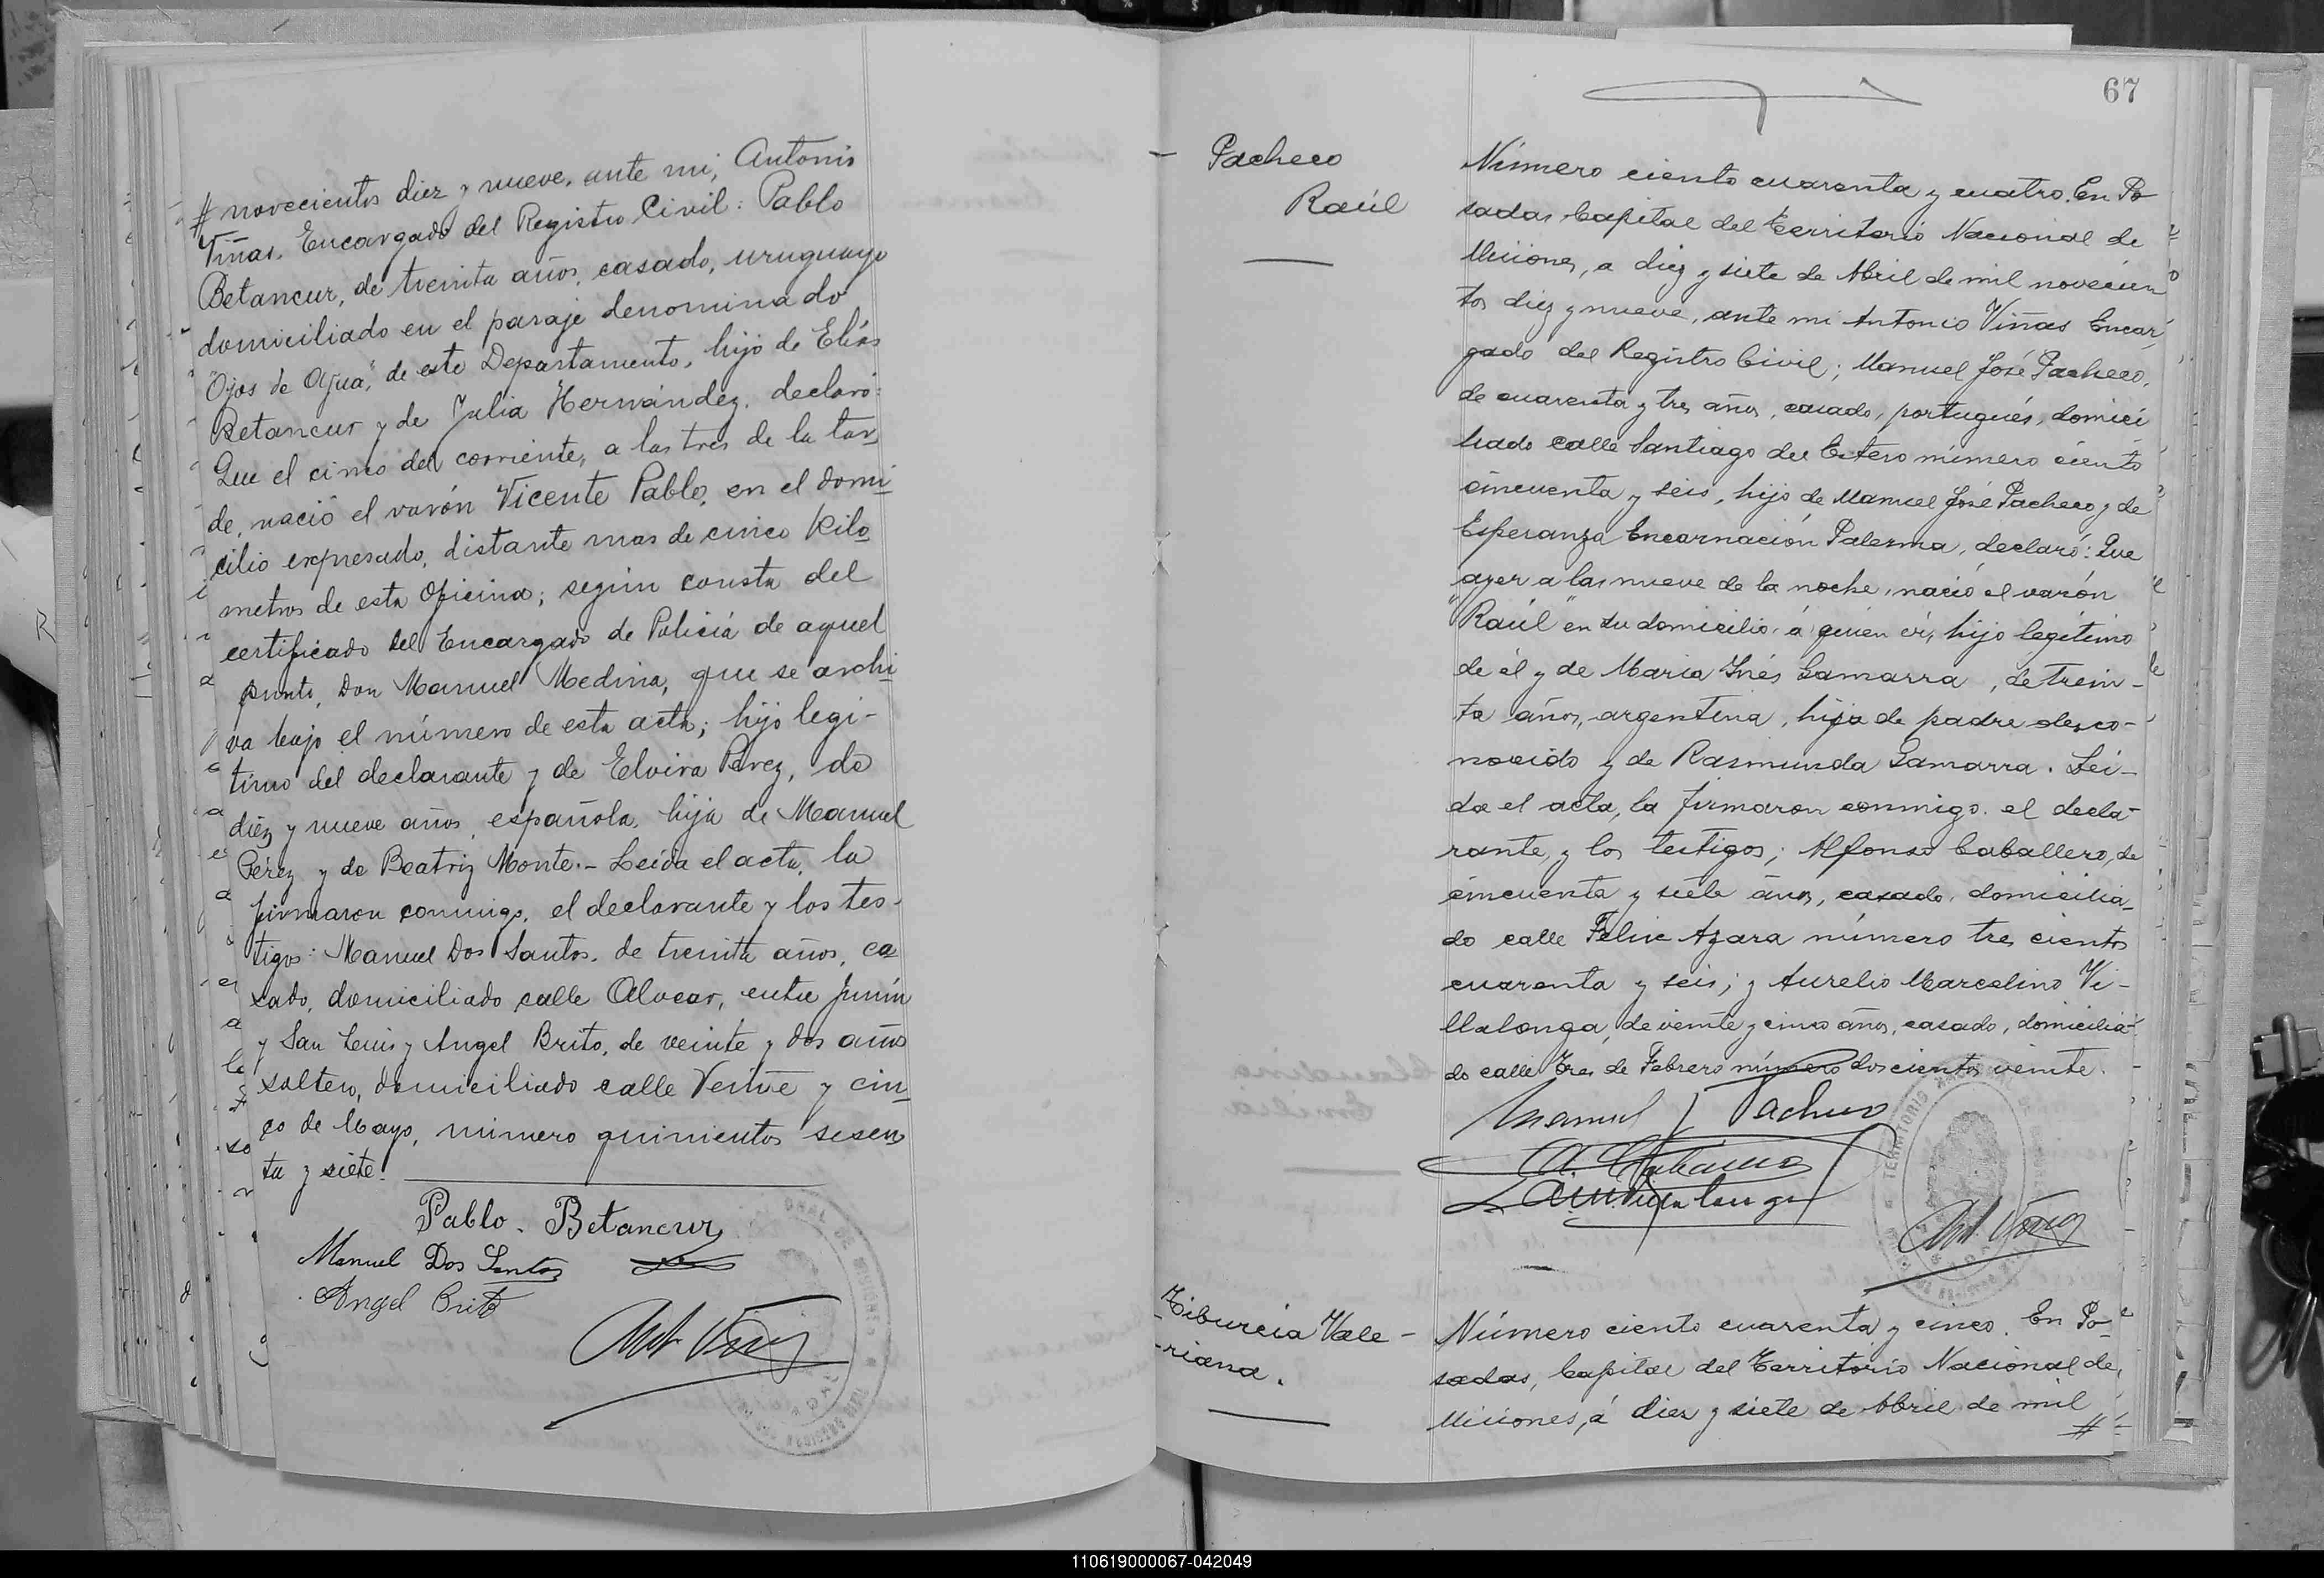 # novecientos diez y nueve, ante mi, Antonio
Viñas, Encargado del Registro Civil: Pablo
Betancur, de treinta años, casado, uruguayo
domiciliado en el paraje denominado
"Ojos de Agua", de este Departamento, hijo de Elías
Betancur y de Julia Hernández, declaró:
Que el cinco del corriente, a las tres de la tar
de, nació el varón Vicente Pablo, en el domi
cilio expresado, distante mas de cinco kiló
metros de esta Oficina; según consta del
certificado del Encargado de Policiá de aquel
punto, Don Manuel Medina, que se archi
va bajo el número de esta acta; hijo legi-
timo del declarante y de Elvira Pérez, de
diez y nueve años, española, hija de Manuel
Pérez y de Beatriz Monte.- Leída el acta, la
firmaron conmigo, el declarante y los tes-
tigos: Manuel Dos Santos, de treinta años, ca
sado, domiciliado calle Alvear, entre Junín
y San Luis y Angel Brito, de veinte y dos años
soltero, domiciliado calle Veinte y cin
co de Mayo, número quinientos sesen
ta y siete.
Pablo Betancur
Manuel Dos Santos
Angel Brito
Ant Viñas
67
Pacheco
Raúl
Número ciento cuarenta y cuatro. En Po
sadas Capital del Territorio Nacional de
Misiones, a diez y siete de Abril de mil novecien
tos diez y nueve, ante mi Antonio Viñas Encar
gado del Registro Civil; Manuel José Pacheco,
de cuarenta y tres años, casado, portugués, domici
liado calle Santiago del Estero número ciento
cincuenta y seis, hijo de Manuel José Pacheco y de
Esperanza Encarnación Palerma, declaró: Que
ayer a las nueve de la noche, nació el varón
"Raúl" en su domicilio, á quien ví, hijo legítimo
de él y de María Inés Gamarra, de trein-
ta años, argentina, hija de padre desco-
nocido y de Raimunda Gamarra. Leí-
da el acta, la firmaron conmigo, el decla-
rante, y los testigos; Alfonso Caballero, de
cincuenta y siete años, casado, domicilia-
do calle Felix Azara número tres cientos
cuarenta y seis; y Aurelio Marcelino Vi-
llalonga, de veinte y cinco años, casado, domicilia-
do calle Tres de Febrero número doscientos veinte.
Manuel J Pacheco
Ant. Viñas
Tiburcia Vale-
riana.
Número ciento cuarenta y cinco. En Po-
sadas, Capital del Territorio Nacional de
Misiones, á diez y siete de Abril de mil
#
110619000067-042049